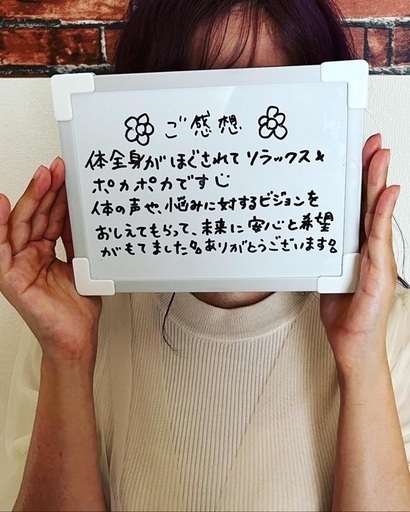 ご感想
体全身がほぐされてリラックス&
ポカポカですじ
体の声や、悩みに対するビジョンを
おしえてもらって、未来に安心と希望
がもてました。ありがとうございます。